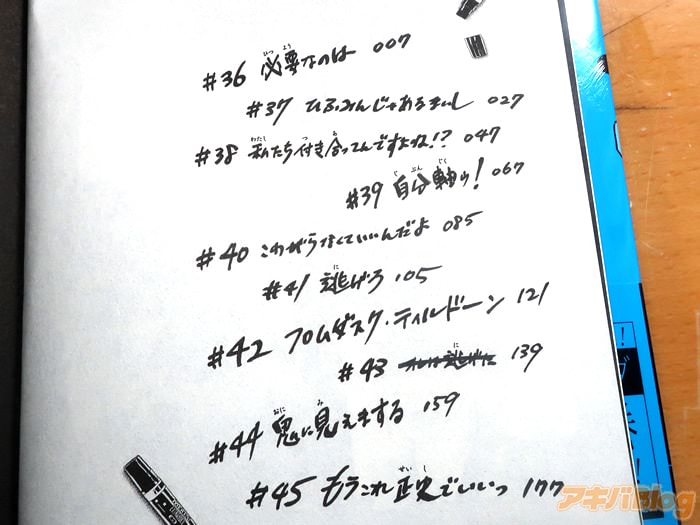 #36 必要なのは 007
#37 ひふみんじゃあるまいし 027
#38 私たち付き合ってんですよね!? 047
#39 自分軸ッ! 067
#40 こわがらなくていいんだよ 085
#41 逃げろ 105
#42 フロムダスク・ティルドーン 121
#43 139
#44 鬼に見えまする 159
#45 もうこれ正史でいいっ 177
アキバBlog